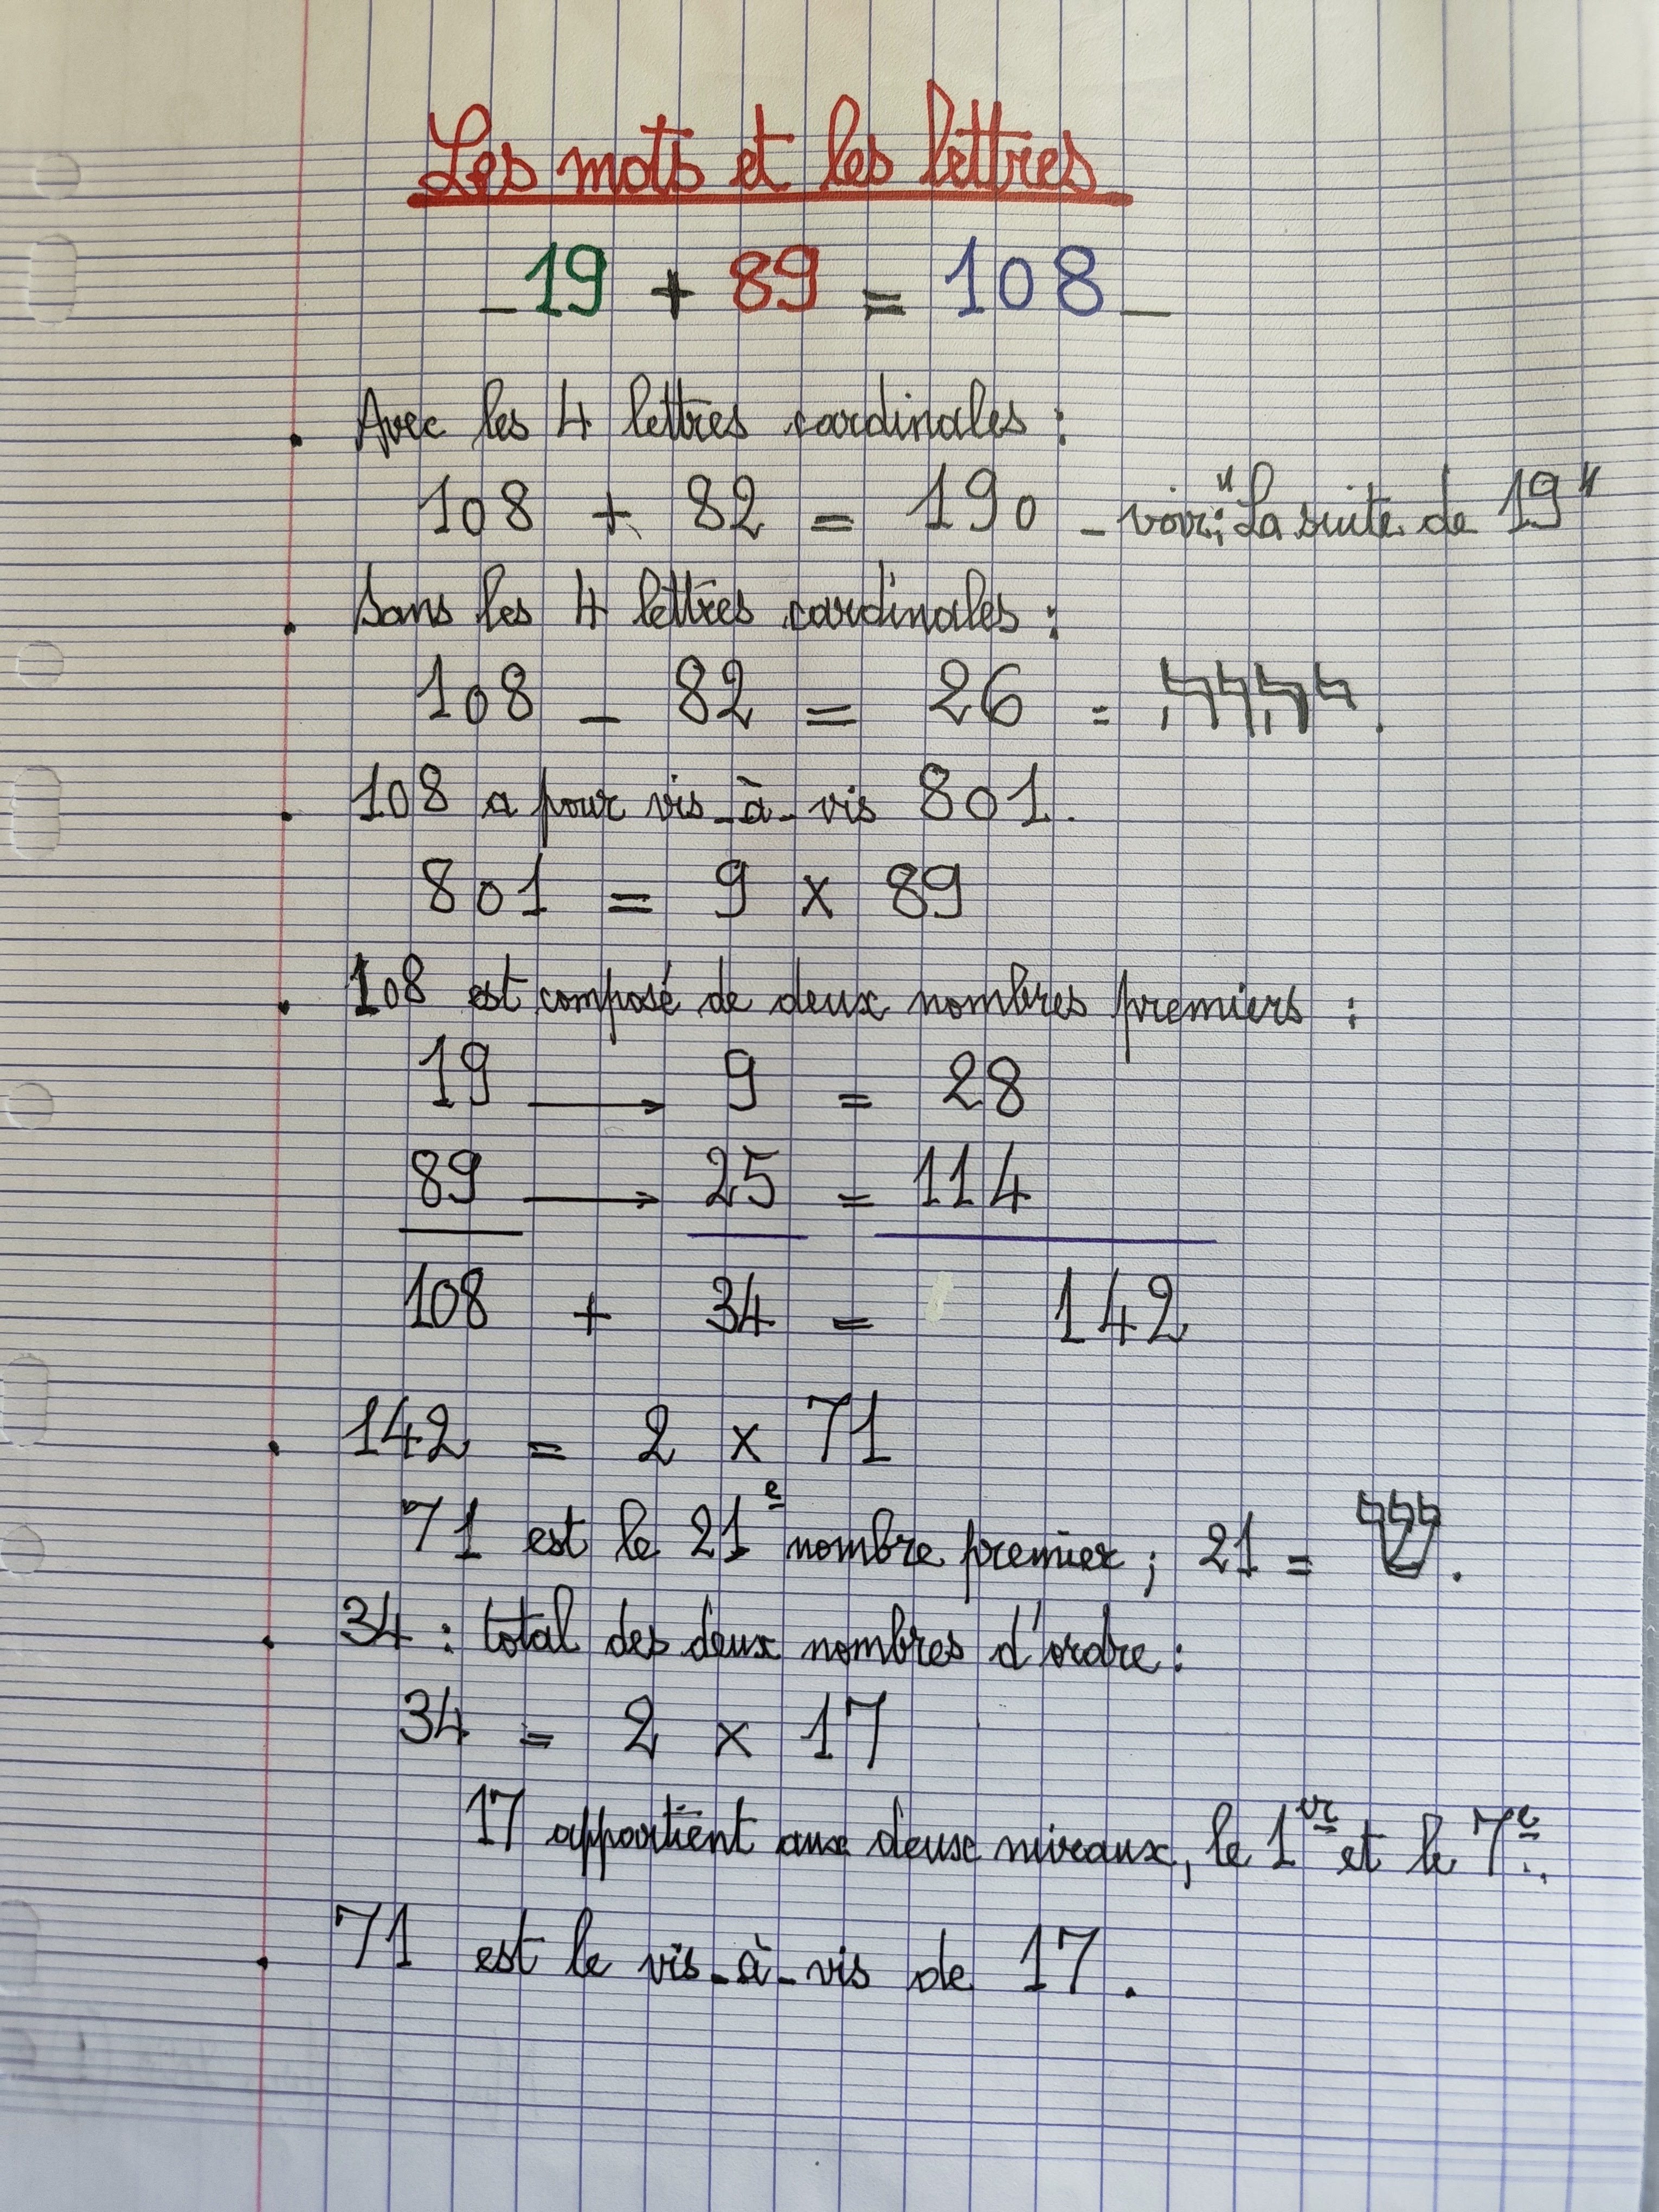 Les mots et les lettres
_ 19 + 89 = 108 _
. Avec les 4 lettres cardinales :
108 + 82 = 190 _ voir : "La suite de 19"
. Sans les 4 lettres cardinales :
108 _ 82 = 26 =
. 108 a pour vis_à_vis 801.
801 = 9 x 89
. 108 est composé de deux nombres premiers :
19 → 9 = 28
89 → 25 = 114
108 + 34 = 142
. 142 = 2 x 71
71 est le 21e nombre premier ; 21 =
. 34 : total des deux nombres d'ordre :
34 = 2 x 17
17 appartient aux deux niveaux, le 1er et le 7e...
. 71 est le vis_à_vis de 17.